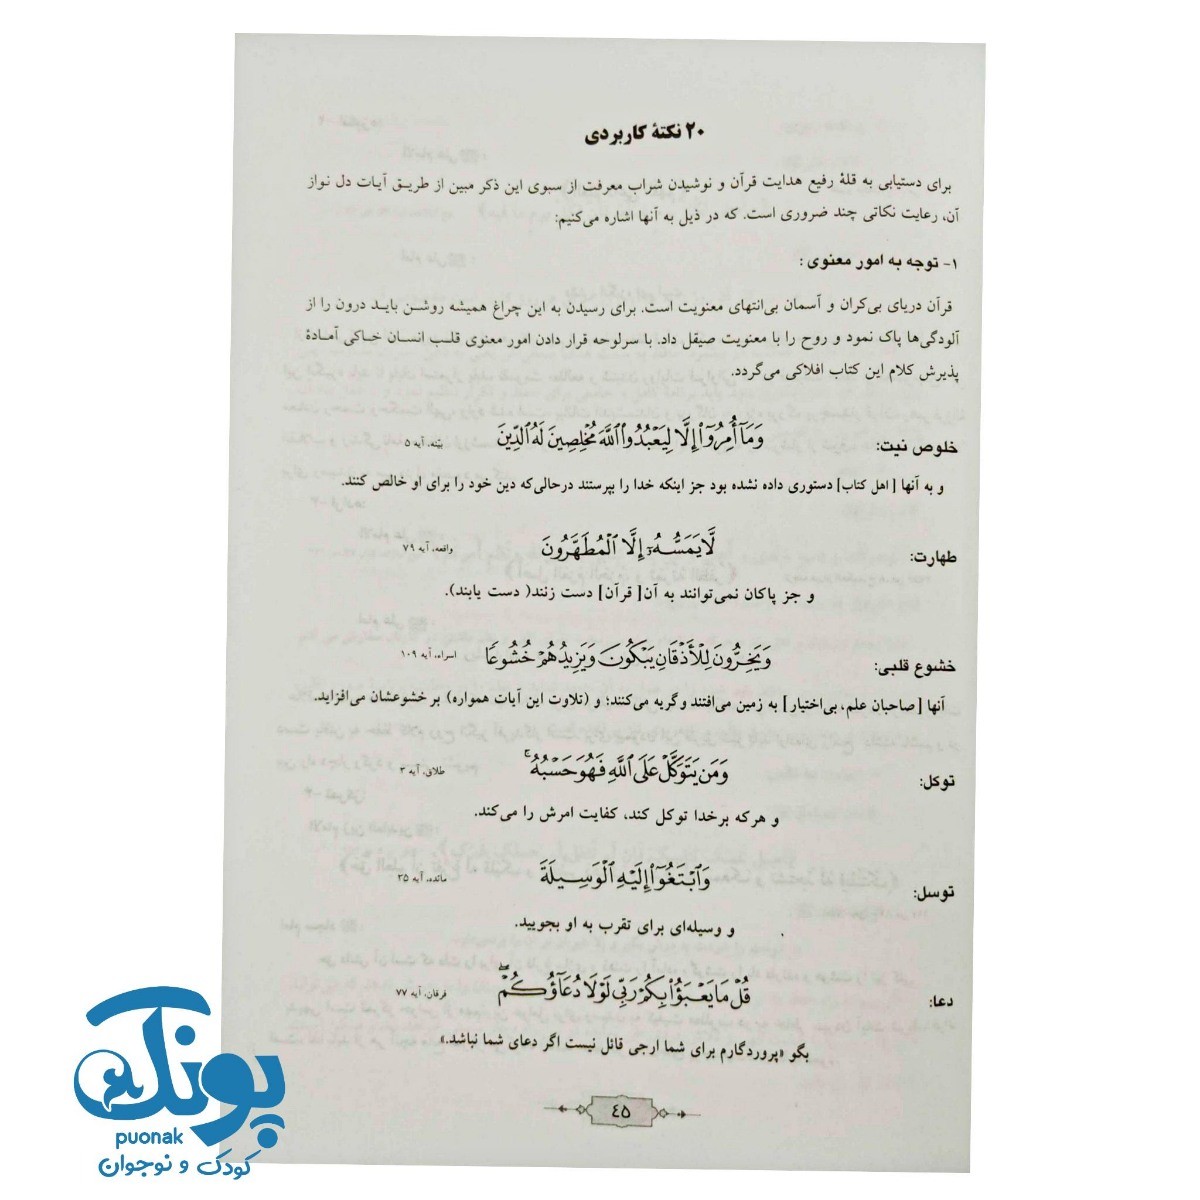 ۲۰ نکتهٔ کاربردی
برای دستیابی به قلهٔ رفیع هدایت قرآن و نوشیدن شراب معرفت از سبوی این ذکر مبین از طریق آیات دل نواز
آن، رعایت نکاتی چند ضروری است. که در ذیل به آنها اشاره می‌کنیم:
۱- توجه به امور معنوی :
قرآن دریای بی‌کران و آسمان بی‌انتهای معنویت است. برای رسیدن به این چراغ همیشه روشن باید درون را از
آلودگی‌ها پاک نمود و روح را با معنویت صیقل داد. با سرلوحه قرار دادن امور معنوی قلب انسان خاکی آمادهٔ
پذیرش کلام این کتاب افلاکی می‌گردد.
خلوص نیت: وَمَآ أُمِرُوٓاْ إِلَّا لِيَعْبُدُواْ ٱللَّهَ مُخْلِصِينَ لَهُ ٱلدِّينَ بینه، آیه ۵
و به آنها [ اهل کتاب] دستوری داده نشده بود جز اینکه خدا را بپرستند درحالی‌که دین خود را برای او خالص کنند.
طهارت: لَّا يَمَسُّهُۥٓ إِلَّا ٱلْمُطَهَّرُونَ واقعه، آیه ۷۹
و جز پاکان نمی‌توانند به آن[ قرآن] دست زنند( دست یابند).
خشوع قلبی: وَيَخِرُّونَ لِلْأَذْقَانِ يَبْكُونَ وَيَزِيدُهُمْ خُشُوعًا اسراء، آیه ۱۰۹
آنها [صاحبان علم، بی‌اختیار] به زمین می‌افتند وگریه می‌کنند؛ و (تلاوت این آیات همواره) بر خشوعشان می‌افزاید.
توکل: وَمَن يَتَوَكَّلْ عَلَى ٱللَّهِ فَهُوَ حَسْبُهُۥٓ ۚ طلاق، آیه ۳
و هرکه برخدا توکل کند، کفایت امرش را می‌کند.
توسل: وَٱبْتَغُوٓاْ إِلَيْهِ ٱلْوَسِيلَةَ مائده، آیه ۳۵
و وسیله‌ای برای تقرب به او بجویید.
دعا: قُلْ مَا يَعْبَؤُاْ بِكُمْ رَبِّي لَوْلَا دُعَآؤُكُمْ ۖ فرقان، آیه ۷۷
بگو «پروردگارم برای شما ارجی قائل نیست اگر دعای شما نباشد.»
۴۵
پونک
puonak
کودک و نوجوان